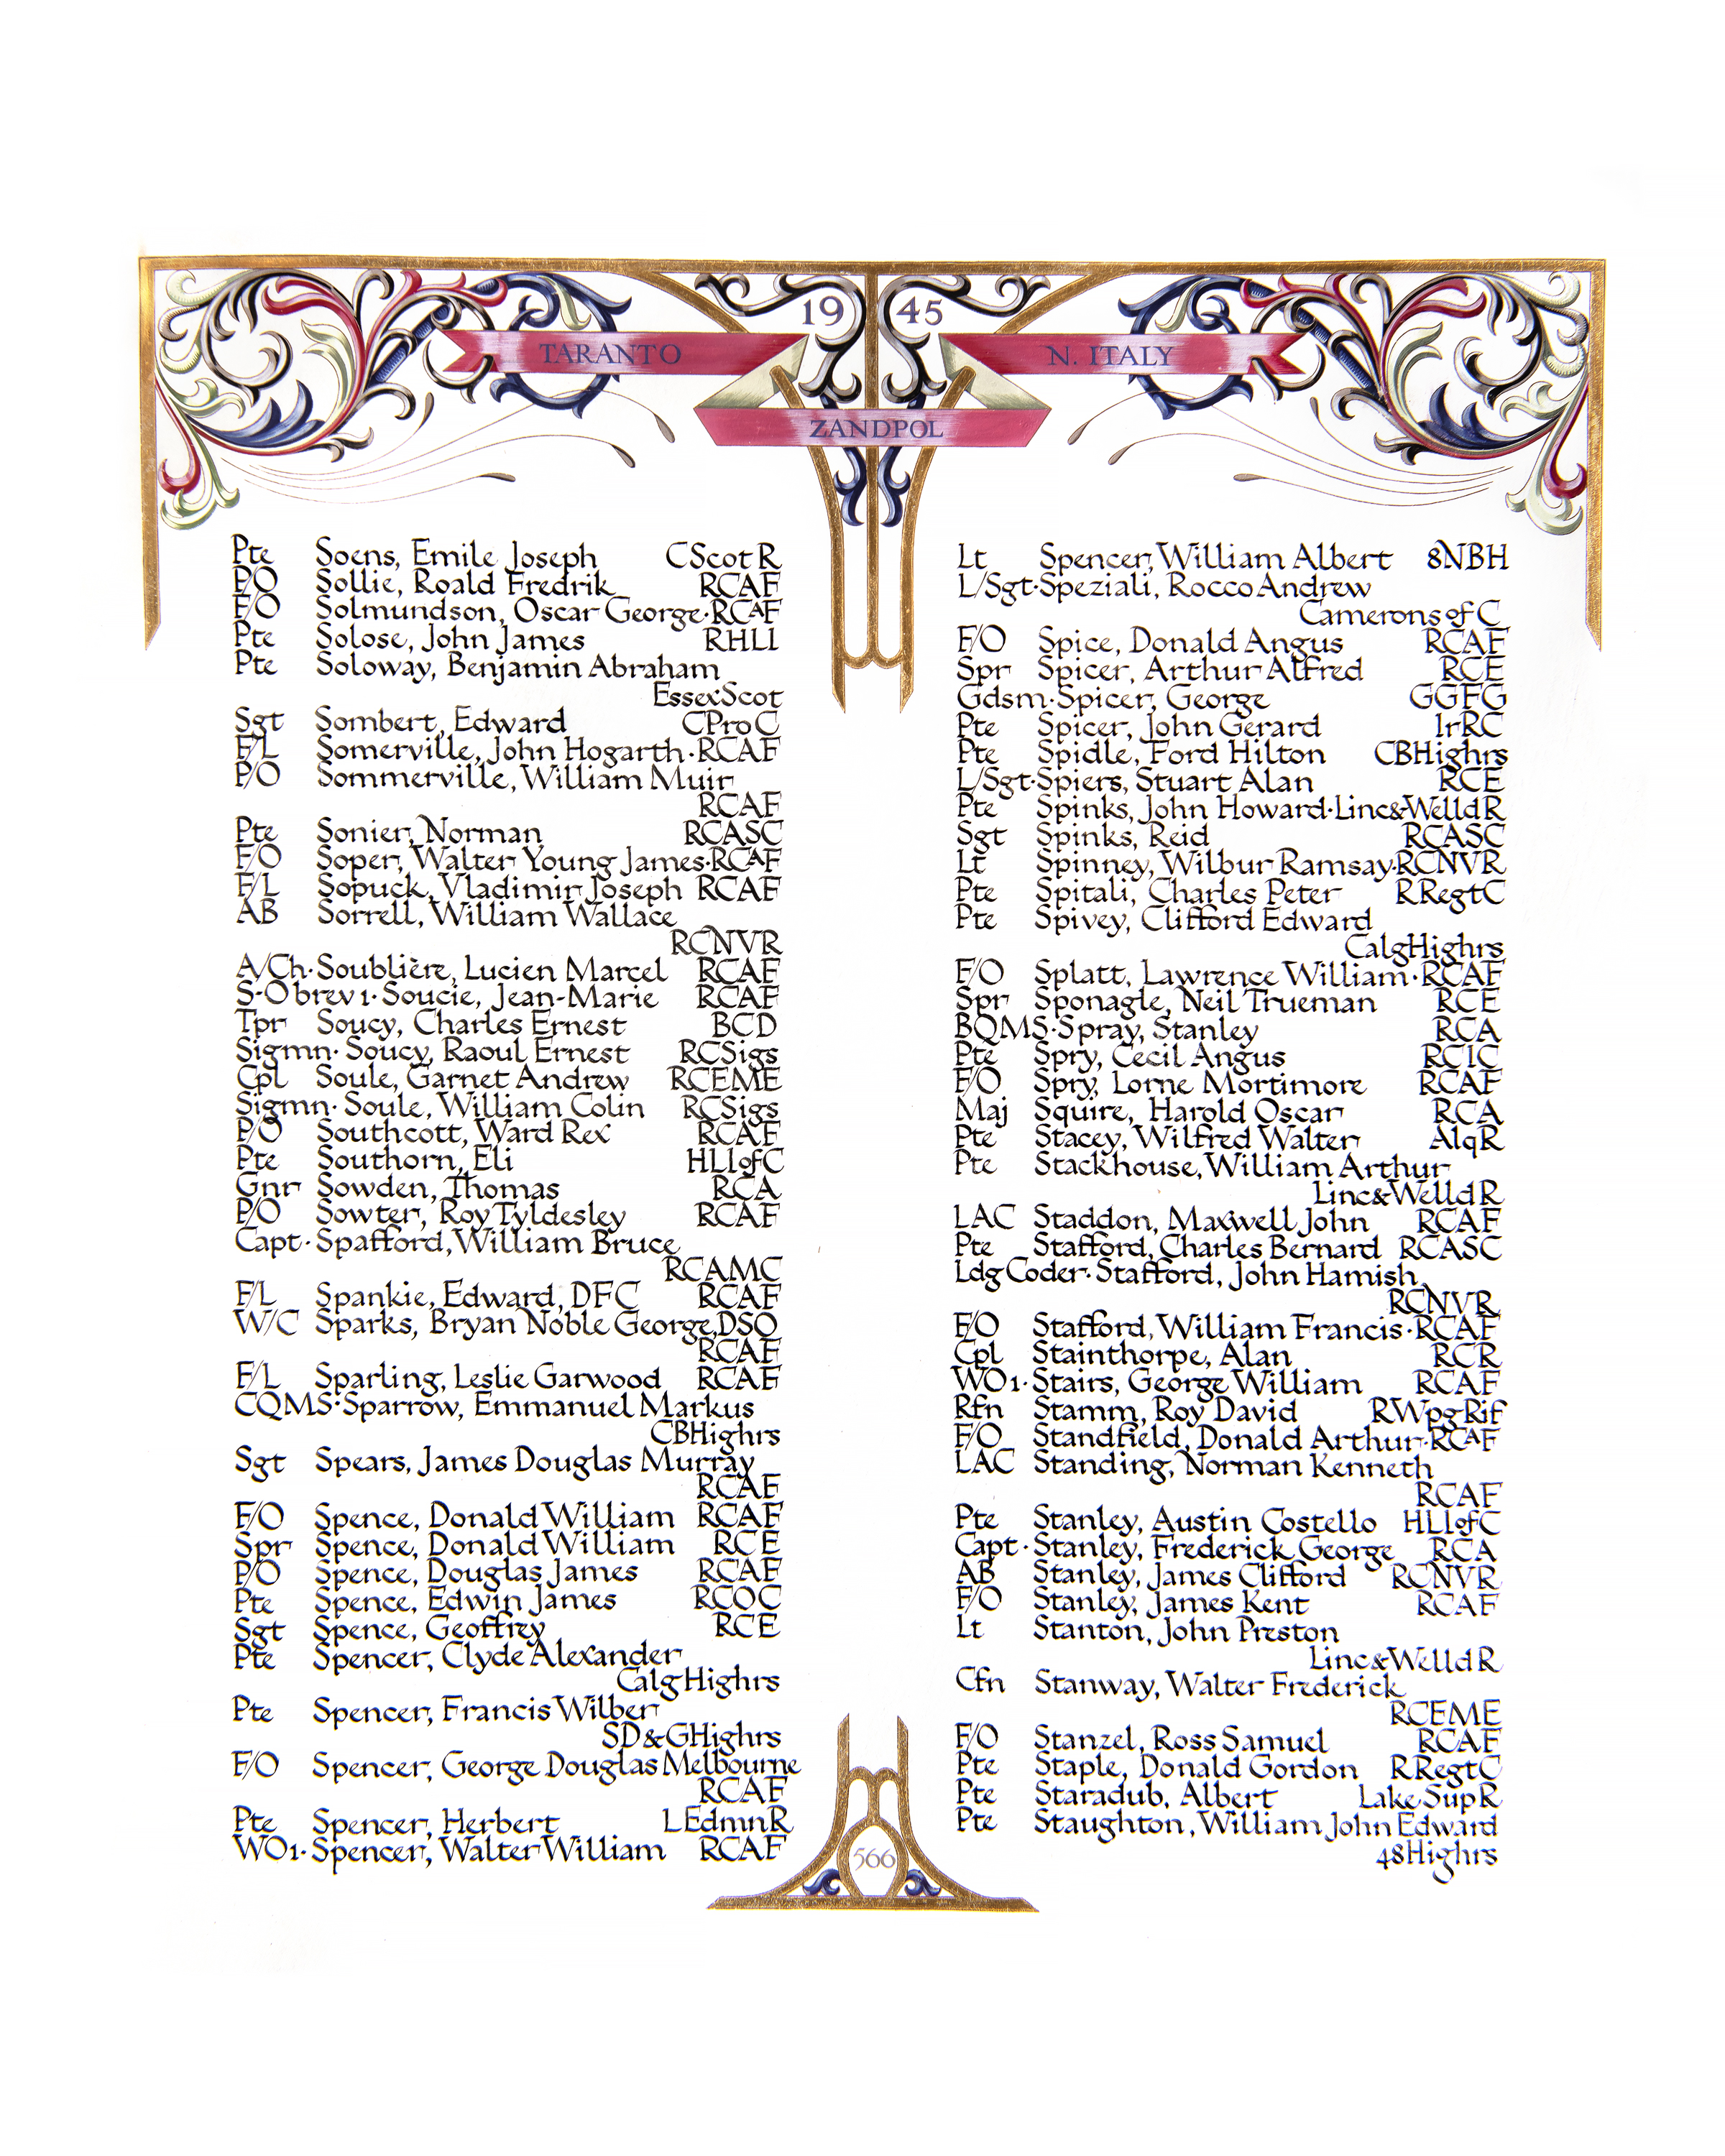 19 45
TARANTO
N. ITALY
ZANDPOL
Pte Soens, Emile Joseph CScotR
P/O Sollie, Roald Fredrik RCAF
F/O Solmundson, Oscar George·RCAF
Pte Solose, John James RHLI
Pte Soloway, Benjamin Abraham
EssexScot
Sgt Sombert, Edward CProC
F/L Somerville, John Hogarth·RCAF
P/O Sommerville, William Muir
RCAF
Pte Sonier, Norman RCASC
F/O Soper, Walter Young James·RCAF
F/L Sopuck, Vladimir Joseph RCAF
AB Sorrell, William Wallace
RCNVR
A/Ch·Soublière, Lucien Marcel RCAF
S-O brev 1·Soucie, Jean-Marie RCAF
Tpr Soucy, Charles Ernest BCD
Sigmn·Soucy, Raoul Ernest RCSigs
Cpl Soule, Garnet Andrew RCEME
Sigmn·Soule, William Colin RCSigs
P/O Southcott, Ward Rex RCAF
Pte Southorn, Eli HLIofC
Gnr Sowden, Thomas RCA
P/O Sowter, Roy Tyldesley RCAF
Capt·Spafford, William Bruce
RCAMC
F/L Spankie, Edward, DFC RCAF
W/C Sparks, Bryan Noble George, DSO
RCAF
F/L Sparling, Leslie Garwood RCAF
CQMS·Sparrow, Emmanuel Markus
CBHighrs
Sgt Spears, James Douglas Murray
RCAF
F/O Spence, Donald William RCAF
Spr Spence, Donald William RCE
P/O Spence, Douglas James RCAF
Pte Spence, Edwin James RCOC
Sgt Spence, Geoffrey RCE
Pte Spencer, Clyde Alexander
CalgHighrs
Pte Spencer, Francis Wilber
SD&GHighrs
F/O Spencer, George Douglas Melbourne
RCAF
Pte Spencer, Herbert LEdmnR
WO1·Spencer, Walter William RCAF
Lt Spencer, William Albert 8NBH
L/Sgt·Speziali, Rocco Andrew
Camerons of C
F/O Spice, Donald Angus RCAF
Spr Spicer, Arthur Alfred RCE
Gdsm·Spicer, George GGFG
Pte Spicer, John Gerard IrRC
Pte Spidle, Ford Hilton CBHighrs
L/Sgt·Spiers, Stuart Alan RCE
Pte Spinks, John Howard·Linc&WelldR
Sgt Spinks, Reid RCASC
Lt Spinney, Wilbur Ramsay·RCNVR
Pte Spitali, Charles Peter RRegtC
Pte Spivey, Clifford Edward
CalgHighrs
F/O Splatt, Lawrence William·RCAF
Spr Sponagle, Neil Trueman RCE
BQMS·Spray, Stanley RCA
Pte Spry, Cecil Angus RCIC
F/O Spry, Lorne Mortimore RCAF
Maj Squire, Harold Oscar RCA
Pte Stacey, Wilfred Walter AlqR
Pte Stackhouse, William Arthur
Linc&WelldR
LAC Staddon, Maxwell John RCAF
Pte Stafford, Charles Bernard RCASC
Ldg Coder·Stafford, John Hamish
RCNVR
F/O Stafford, William Francis·RCAF
Cpl Stainthorpe, Alan RCR
WO1·Stairs, George William RCAF
Rfn Stamm, Roy David RWpgRif
F/O Standfield, Donald Arthur·RCAF
LAC Standing, Norman Kenneth
RCAF
Pte Stanley, Austin Costello HLIofC
Capt·Stanley, Frederick George RCA
AB Stanley, James Clifford RCNVR
F/O Stanley, James Kent RCAF
Lt Stanton, John Preston
Linc&WelldR
Cfn Stanway, Walter Frederick
RCEME
F/O Stanzel, Ross Samuel RCAF
Pte Staple, Donald Gordon RRegtC
Pte Staradub, Albert LakeSupR
Pte Staughton, William John Edward
48Highrs
566